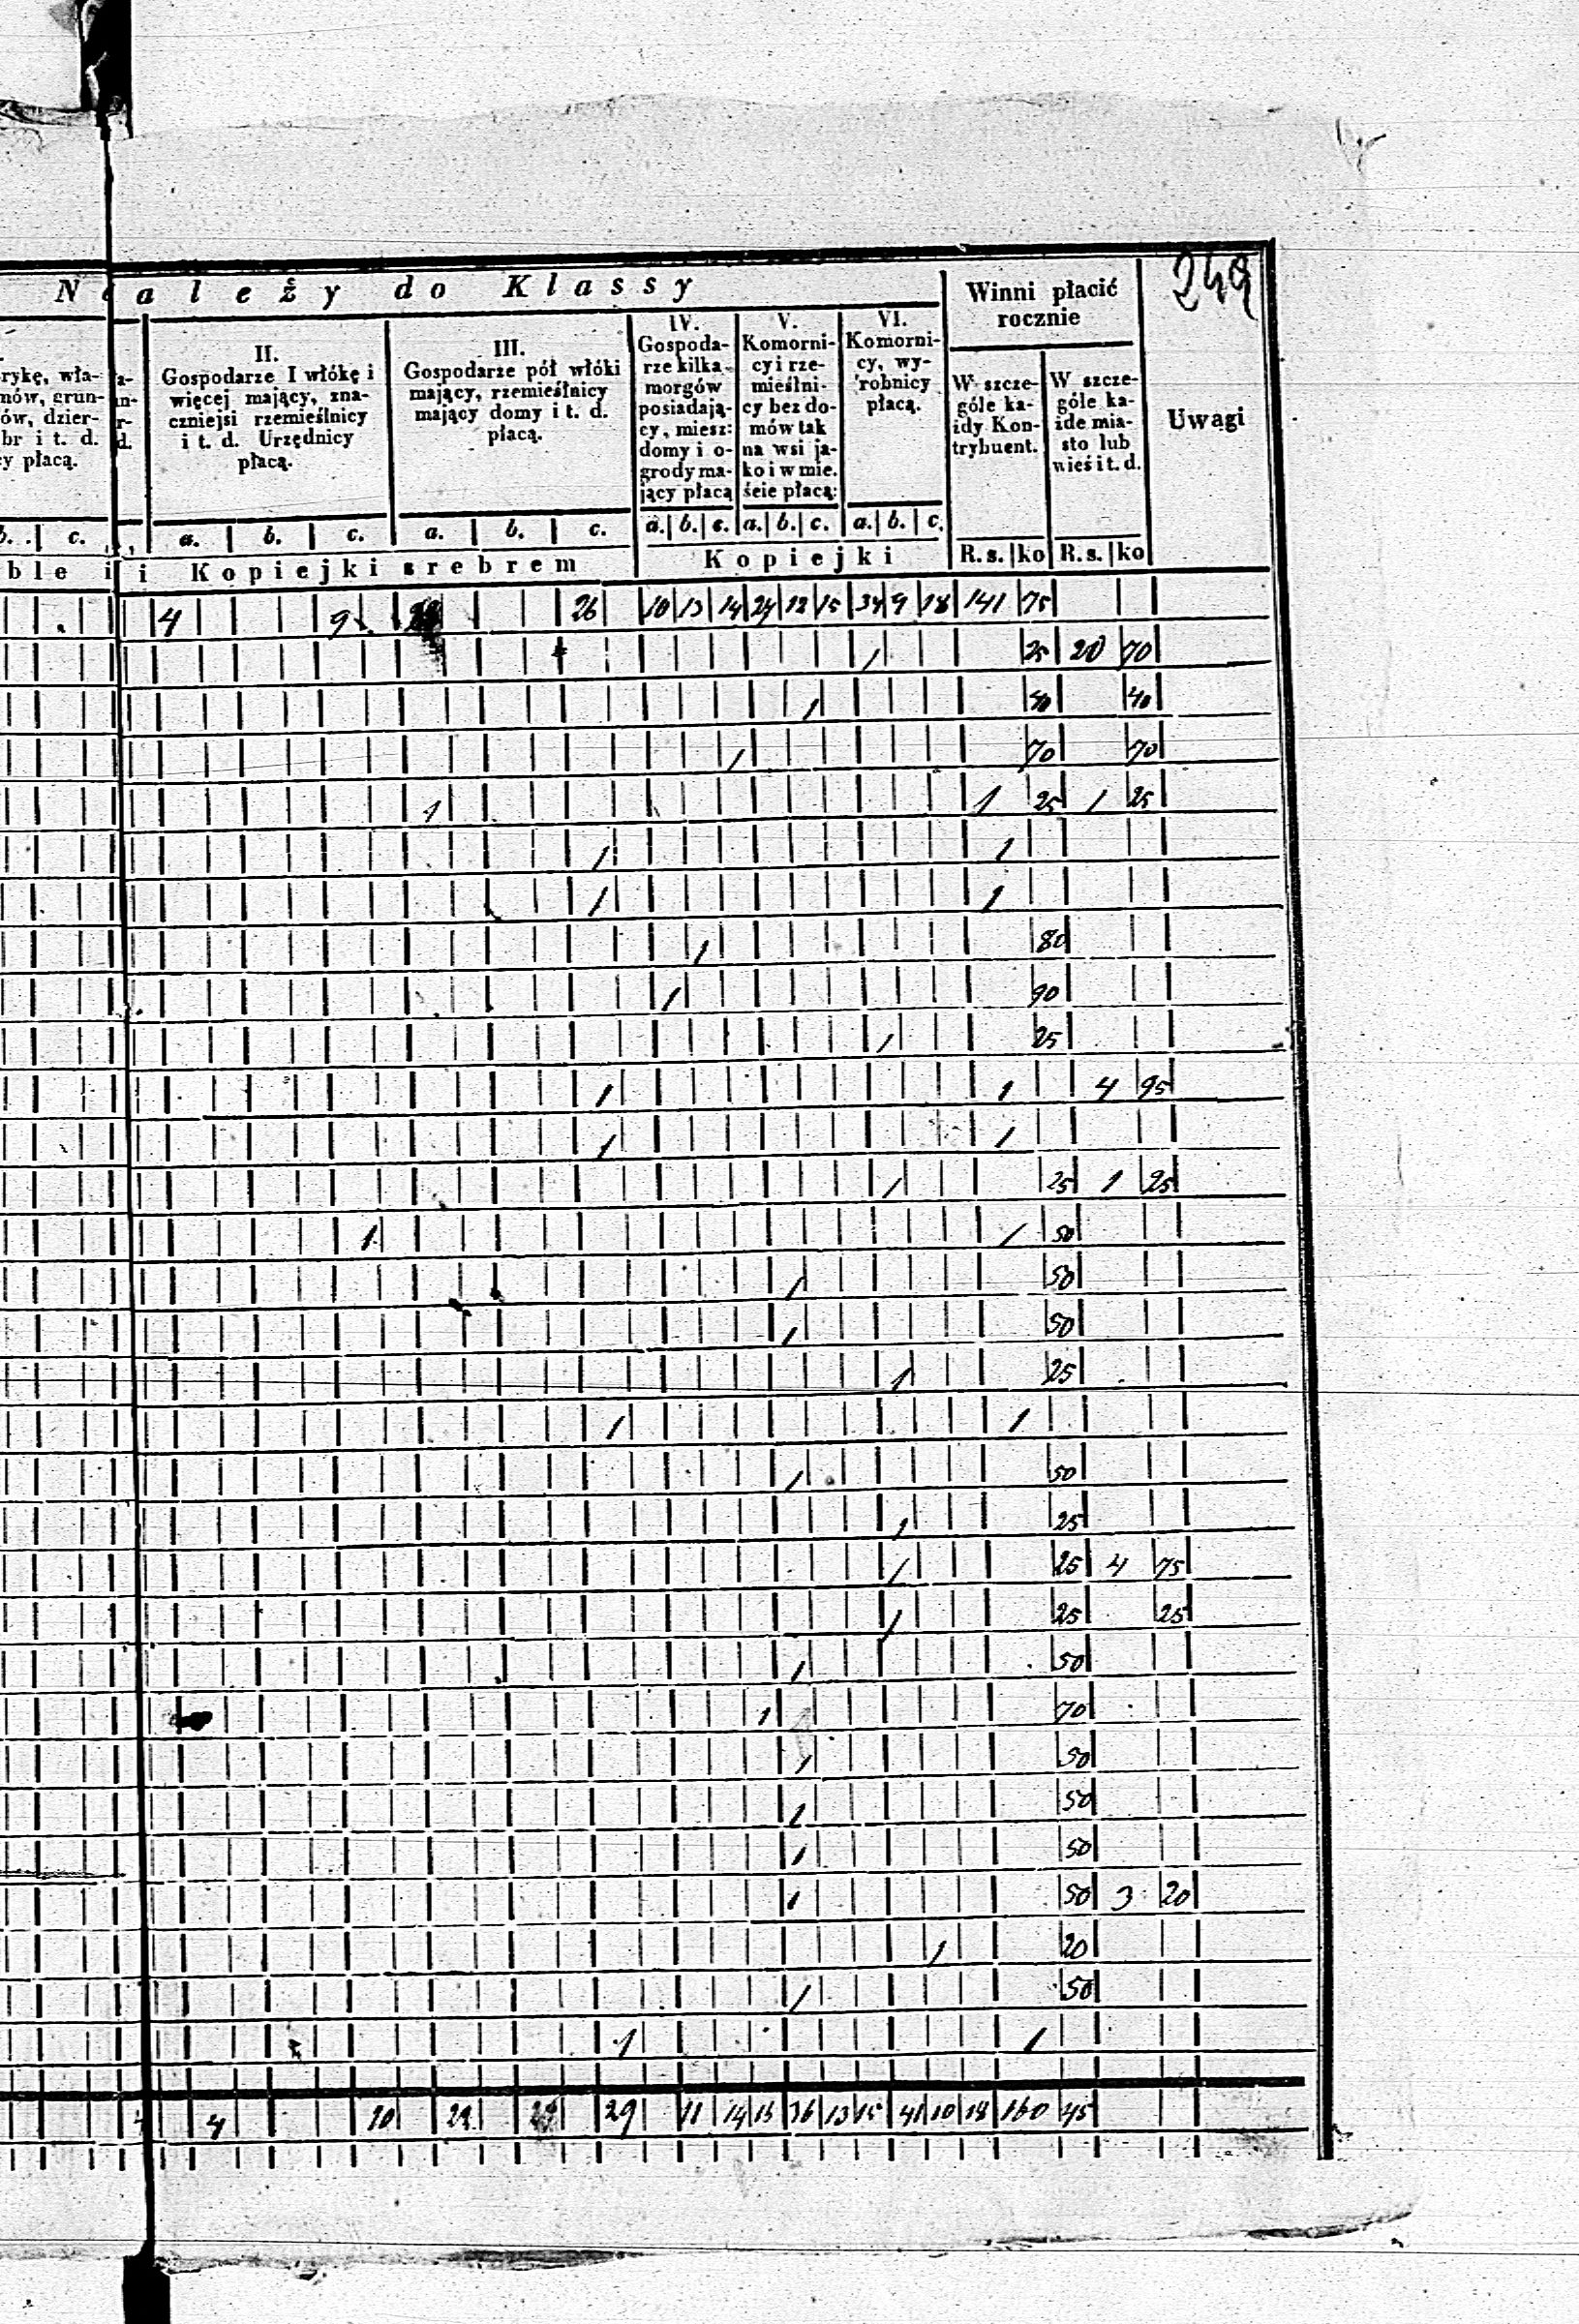 249
Należy do Klassy
Winni płacić
rocznie
Uwagi
rykę, wła-
mów, grun-
ów, dzier-
br i t. d.
cy płacą.
a-
un-
r-
d.
II.
Gospodarze I włókę i
więcej mający, zna-
czniejsi rzemieślnicy
i t. d. Urzędnicy
płacą.
III.
Gospodarze pół włóki
mający, rzemieślnicy
mający domy i t. d.
płacą.
IV.
Gospoda-
rze kilka
morgów
posiadają-
cy, miesz:
domy i o-
grody ma-
jący płacą
V.
Komorni-
cy i rze-
mieślni-
cy bez do-
mów tak
na wsi ja-
ko i w mie.
ście płacą:
VI.
Komorni-
cy, wy-
robnicy
płacą.
W szcze-
góle ka-
idy Kon-
trybuent.
W szcze-
góle ka-
ide mia-
sto lub
wieś i t. d.
b. c. a. b. c. a. b. c. a. b. c. a. b. c. a. b. c.
ble i i Kopiejki srebrem Kopiejki R. s. ko R. s. ko
4 9 26 10 13 14 24 12 15 34 9 18 141 75
1 25 20 70
1 40 40
1 70 70
1 1 25 1 25
1 1
1 1
1 80
1 90
1 25
1 1 4 95
1 1
1 25 1 25
1 1 50
1 50
1 50
1 25
1 1
1 50
1 25
1 25 4 75
1 25 25
1 50
1 70
1 50
1 50
1 50
1 50 3 20
1 20
1 50
1 1
4 10 29 11 14 15 36 13 15 41 10 18 160 45